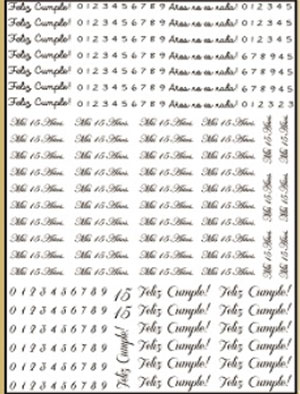 Feliz Cumple! 0 1 2 3 4 5 6 7 8 9 0 1 2 3 4 5
Feliz Cumple! 0 1 2 3 4 5 6 7 8 9 6 7 8 9 4 5
Feliz Cumple! 0 1 2 3 4 5 6 7 8 9 0 1 2 3 4 5
Feliz Cumple! 0 1 2 3 4 5 6 7 8 9 6 7 8 9 4 5
Feliz Cumple! 0 1 2 3 4 5 6 7 8 9 0 1 2 3 4 5
Feliz Cumple! 0 1 2 3 4 5 6 7 8 9 6 7 8 9 4 5
Feliz Cumple! 0 1 2 3 4 5 6 7 8 9 0 1 2 3 2 3
Mis 15 Años. Mis 15 Años. Mis 15 Años. Mis 15 Años.
Mis 15 Años. Mis 15 Años. Mis 15 Años. Mis 15 Años.
Mis 15 Años. Mis 15 Años. Mis 15 Años. Mis 15 Años.
Mis 15 Años. Mis 15 Años. Mis 15 Años. Mis 15 Años.
Mis 15 Años. Mis 15 Años. Mis 15 Años. Mis 15 Años.
Mis 15 Años. Mis 15 Años. Mis 15 Años. Mis 15 Años.
Mis 15 Años. Mis 15 Años. Mis 15 Años. Mis 15 Años.
Mis 15 Años. Mis 15 Años. Mis 15 Años. Mis 15 Años.
Mis 15 Años. Mis 15 Años. Mis 15 Años. Mis 15 Años.
Mis 15 Años. Mis 15 Años. Mis 15 Años. Mis 15 Años.
Mis 15 Años. Mis 15 Años.
Mis 15 Años. Mis 15 Años.
Mis 15 Años. Mis 15 Años.
Mis 15 Años. Mis 15 Años.
0 1 2 3 4 5 6 7 8 9 Feliz Cumple! Feliz Cumple!
0 1 2 3 4 5 6 7 8 9 Feliz Cumple! Feliz Cumple!
0 1 2 3 4 5 6 7 8 9 Feliz Cumple! Feliz Cumple!
0 1 2 3 4 5 6 7 8 9 Feliz Cumple! Feliz Cumple!
0 1 2 3 4 5 6 7 8 9 Feliz Cumple! Feliz Cumple!
0 1 2 3 4 5 6 7 8 9 Feliz Cumple! Feliz Cumple!
Feliz Cumple!